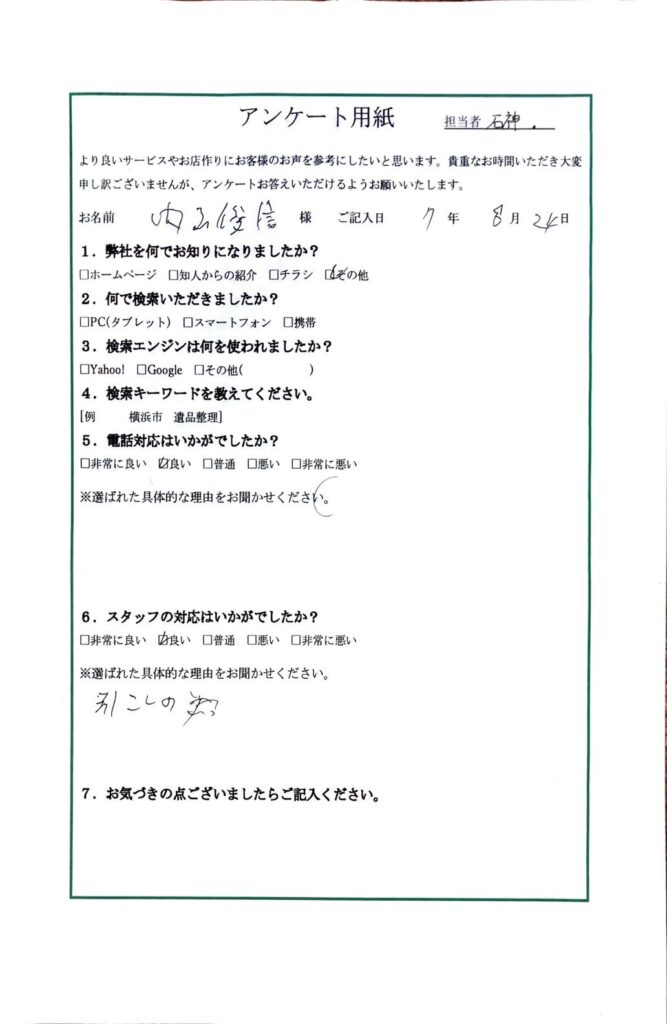 アンケート用紙
担当者 石神
より良いサービスやお店作りにお客様のお声を参考にしたいと思います。貴重なお時間いただき大変
申し訳ございませんが、アンケートお答えいただけるようお願いいたします。
お名前 内 俊信 様 ご記入日 7 年 8 月 24 日
1．弊社を何でお知りになりましたか？
□ホームページ □知人からの紹介 □チラシ ☑その他
2．何で検索いただきましたか？
□PC(タブレット) □スマートフォン □携帯
3．検索エンジンは何を使われましたか？
□Yahoo! □Google □その他( )
4．検索キーワードを教えてください。
[例 横浜市 遺品整理]
5．電話対応はいかがでしたか？
□非常に良い ☑良い □普通 □悪い □非常に悪い
※選ばれた具体的な理由をお聞かせください。
6．スタッフの対応はいかがでしたか？
□非常に良い ☑良い □普通 □悪い □非常に悪い
※選ばれた具体的な理由をお聞かせください。
引こしの
7．お気づきの点ございましたらご記入ください。